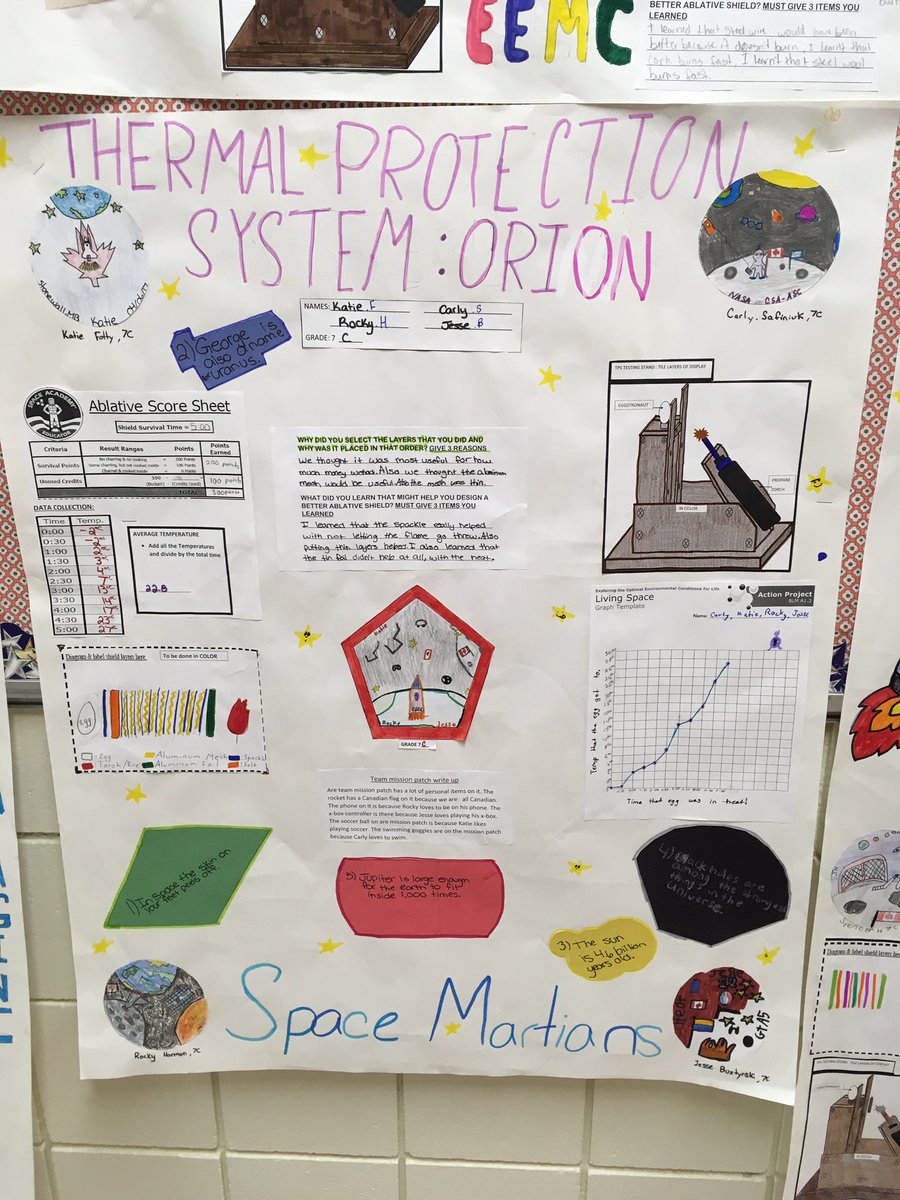 EEMC
BETTER ABLATIVE SHIELD? MUST GIVE 3 ITEMS YOU
LEARNED
I learned that steel wire would have been
better because it doesn't burn, I learnt that
cork burns fast, I learnt that steel wool
burns fast.
THERMAL PROTECTION
SYSTEM : ORION
Stonewall, MB
Katie
Katie Fotty, 7C
NASA CSA-ASC
Carly. Safiniuk, 7C
NAMES: Katie. F Carly. S
Rocky. H Jesse B
GRADE: 7 C
2) George is
also a name
for uranus.
SPACE ACADEMY
EDUCATOR
Ablative Score Sheet
Shield Survival Time = 5:00
Criteria Result Ranges Points Points
Earned
Survival Points
No charring & no cooking = 300 Points
Some charring, but not cooked inside = 100 Points
Charred & cooked inside 0 Points
Unused Credits 100 100 points
(Budget) (Credits Used)
TOTAL 300points
DATA COLLECTION:
Time Temp.
0:00
0:30
1:00
1:30
2:00
2:30
3:00
3:30
4:00
4:30 23°
5:00 27°
AVERAGE TEMPERATURE
• Add all the Temperatures
and divide by the total time
22.8
WHY DID YOU SELECT THE LAYERS THAT YOU DID AND
WHY WAS IT PLACED IN THAT ORDER? GIVE 3 REASONS
We thought it was most useful for how
much money we had. Also we thought the
mesh would be useful. the mesh was thin.
WHAT DID YOU LEARN THAT MIGHT HELP YOU DESIGN A
BETTER ABLATIVE SHIELD? MUST GIVE 3 ITEMS YOU
LEARNED
I learned that the spackle easily helped
with not letting the flame go threw. Also
putting thin layers helped. I also learned that
the tin foil didn't help at all, with the heat.
TPS TESTING STAND : TILE LAYERS OF DISPLAY
EGGSTRONAUT
PROPANE
TORCH
IN COLOR
Exploring the Optimal Environmental Conditions for Life
Living Space
Graph Template
Action Project
BLM A1.2
Name: Carly, Katie, Rocky, Jesse
Temp that the egg got to.
Time that egg was in heat!
Diagram & label shield layers here. To be done in COLOR
Egg
:Egg :Aluminum Mesh :Spackle
:Torch/fire :Aluminum foil :Felt
Katie
Rocky Jesse
GRADE 7 C
Team mission patch write up
Are team mission patch has a lot of personal items on it. The
rocket has a Canadian flag on it because we are all Canadian.
The phone on it is because Rocky loves to be on his phone. The
x-box controller is there because Jesse loves playing his x-box.
The soccer ball on are mission patch is because Katie likes
playing soccer. The swimming goggles are on the mission patch
because Carly loves to swim.
1) In space the skin on
your feet peels off.
5) Jupiter is large enough
for the earth to fit
inside 1,000 times.
4) Black holes are
among the strongest
thing in the
Universe.
3) The sun
is 4.6 billion
years old.
Rocky Harman, 7C
Space Martians
Jesse
Heat
GTA5
7C
Diagram & label shield layers here
TPS TESTING STAND : TILE LAYERS OF DISPLAY